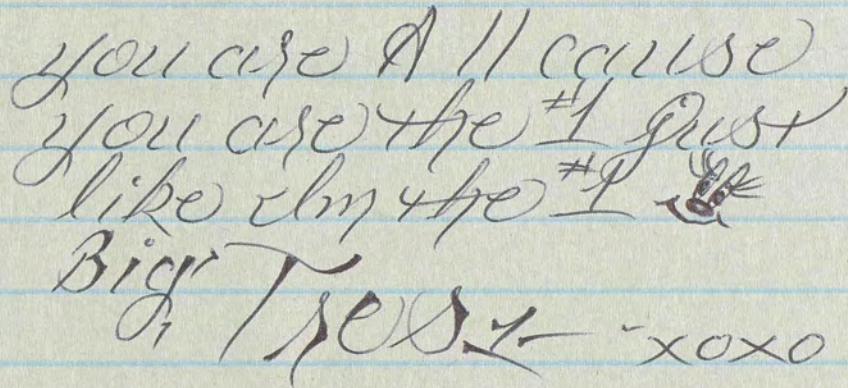 you are A 11 cause
you are the #1 Just
like Im the #1
Big Tres2 - xoxo